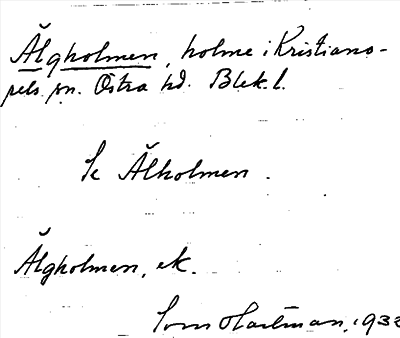 Älgholmen, holme i Kristiano-
pels sn. Östra hd. Blek. l.
Se Älholmen.
Älgholmen, ek.
Hartman, 193